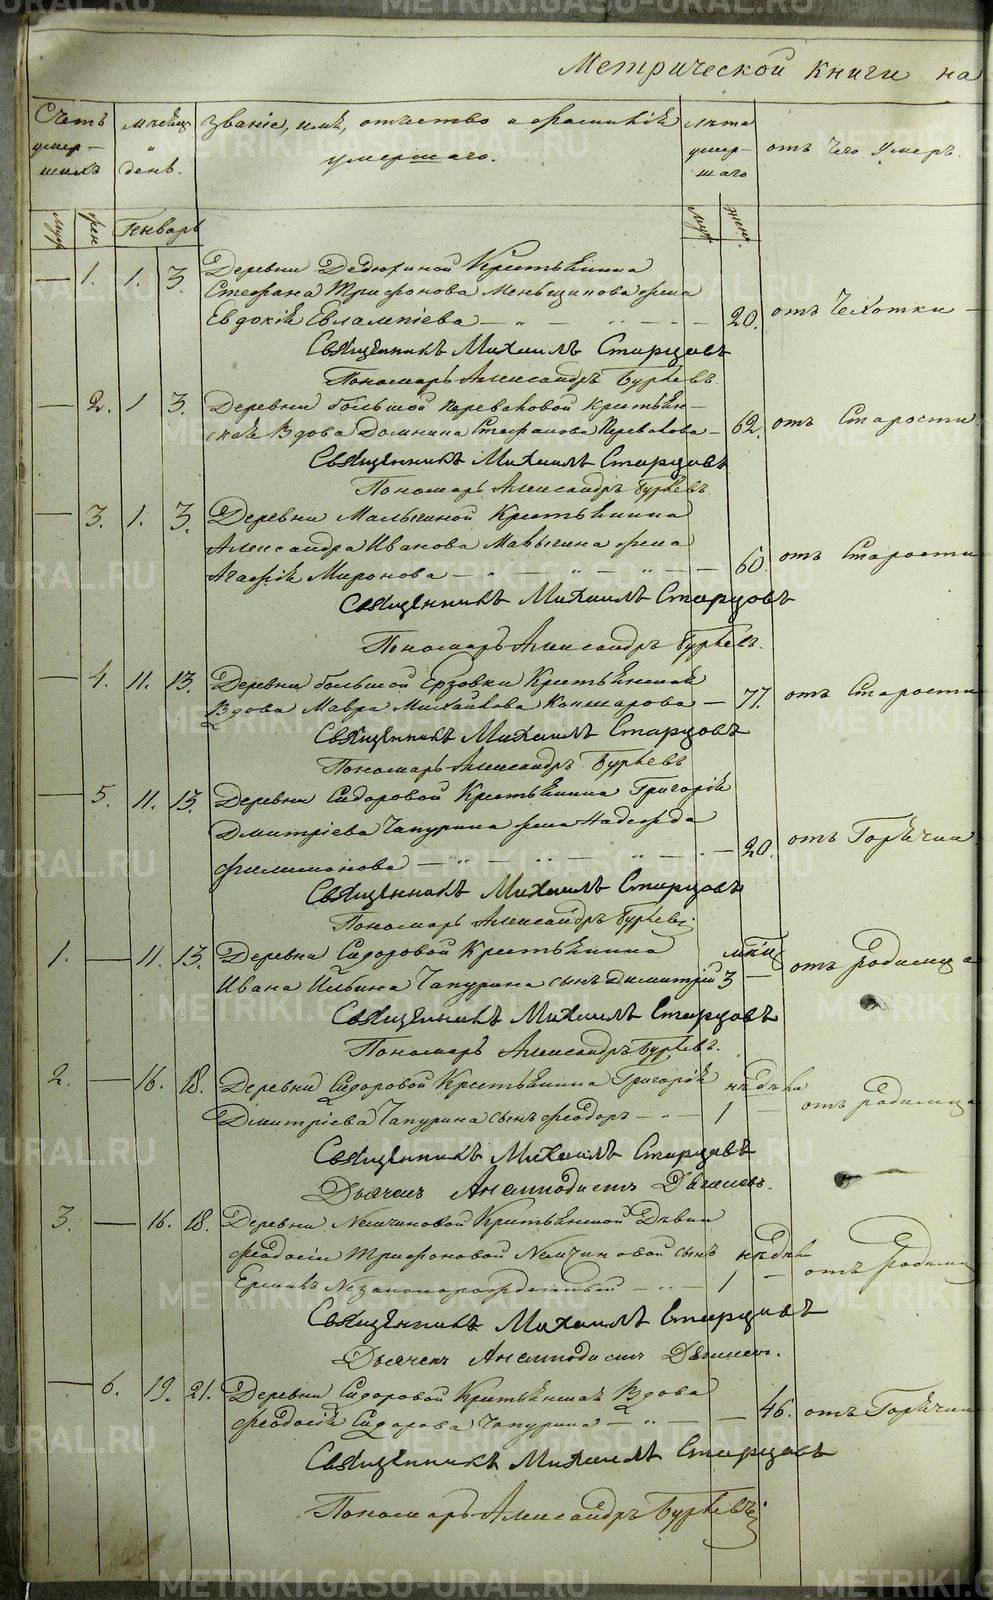 Метрической книги на
Счетъ умер- шихъ
мѣсяцъ " день.
званіе, имя, отчество и фамилія умершаго.
лѣта умер- шаго
отъ чего умеръ.
муж жен Январь муж. жен.
— 1. 1. 3. Деревни Дедюхиной Крестьянина
Стефана Трифонова Меньщикова жена
Евдокія Евлампіева — " — " — 20. отъ Чехотки —
Священникъ Михаилъ Старцовъ
Пономарь Александръ Бурдевъ.
— 2. 1 3. Деревни большой Переваловой Крестьян-
ская Вдова Домнина Стефанова — 62. отъ Старости
Священникъ Михаилъ Старцовъ
Пономарь Александръ
— 3. 1. 3. Деревни Малыгиной Крестьянина
Александра Иванова Малыгина жена
Агафія Миронова — " — " — " — 60. отъ Старости
Священникъ Михаилъ Старцовъ
Пономарь Александръ
— 4. 11. 13. Деревни большой Ерзовки Крестьянская
Вдова Мавра Михайлова — 77. отъ Старости
Священникъ Михаилъ Старцовъ
Пономарь Александръ
— 5. 11. 13. Деревни Сидоровой Крестьянина Григорія
Дмитріева Чапурина жена Надежда
Филимонова — " — " — " — 20. отъ Горячки
Священникъ Михаилъ Старцовъ
Пономарь Александръ
1. — 11. 13. Деревни Сидоровой Крестьянина мѣсяц
Ивана Ильина Чапурина сынъ Димитрій 3 — отъ родимца
Священникъ Михаилъ Старцовъ
Пономарь Александръ
2. — 16. 18. Деревни Сидоровой Крестьянина Григорія недѣли
Дмитріева Чапурина сынъ Феодоръ — " — 1 — отъ родимца
Священникъ Михаилъ Старцовъ
Дьячекъ Анемподистъ
3. — 16. 18. Деревни Немчиновой Крестьянской Дѣвки
Феодосіи Трифоновой Немчиновой сынъ недѣли
Ермилъ Незаконорожденный — " — 1 — отъ родимца
Священникъ Михаилъ Старцовъ
Дьячекъ Анемподистъ
— 6. 19. 21. Деревни Сидоровой Крестьянская Вдова
Феодосія Сидорова Чапурина — " — 46. отъ Горячки
Священникъ Михаилъ Старцовъ
Пономарь Александръ
METRIKI.GASO-URAL.RU